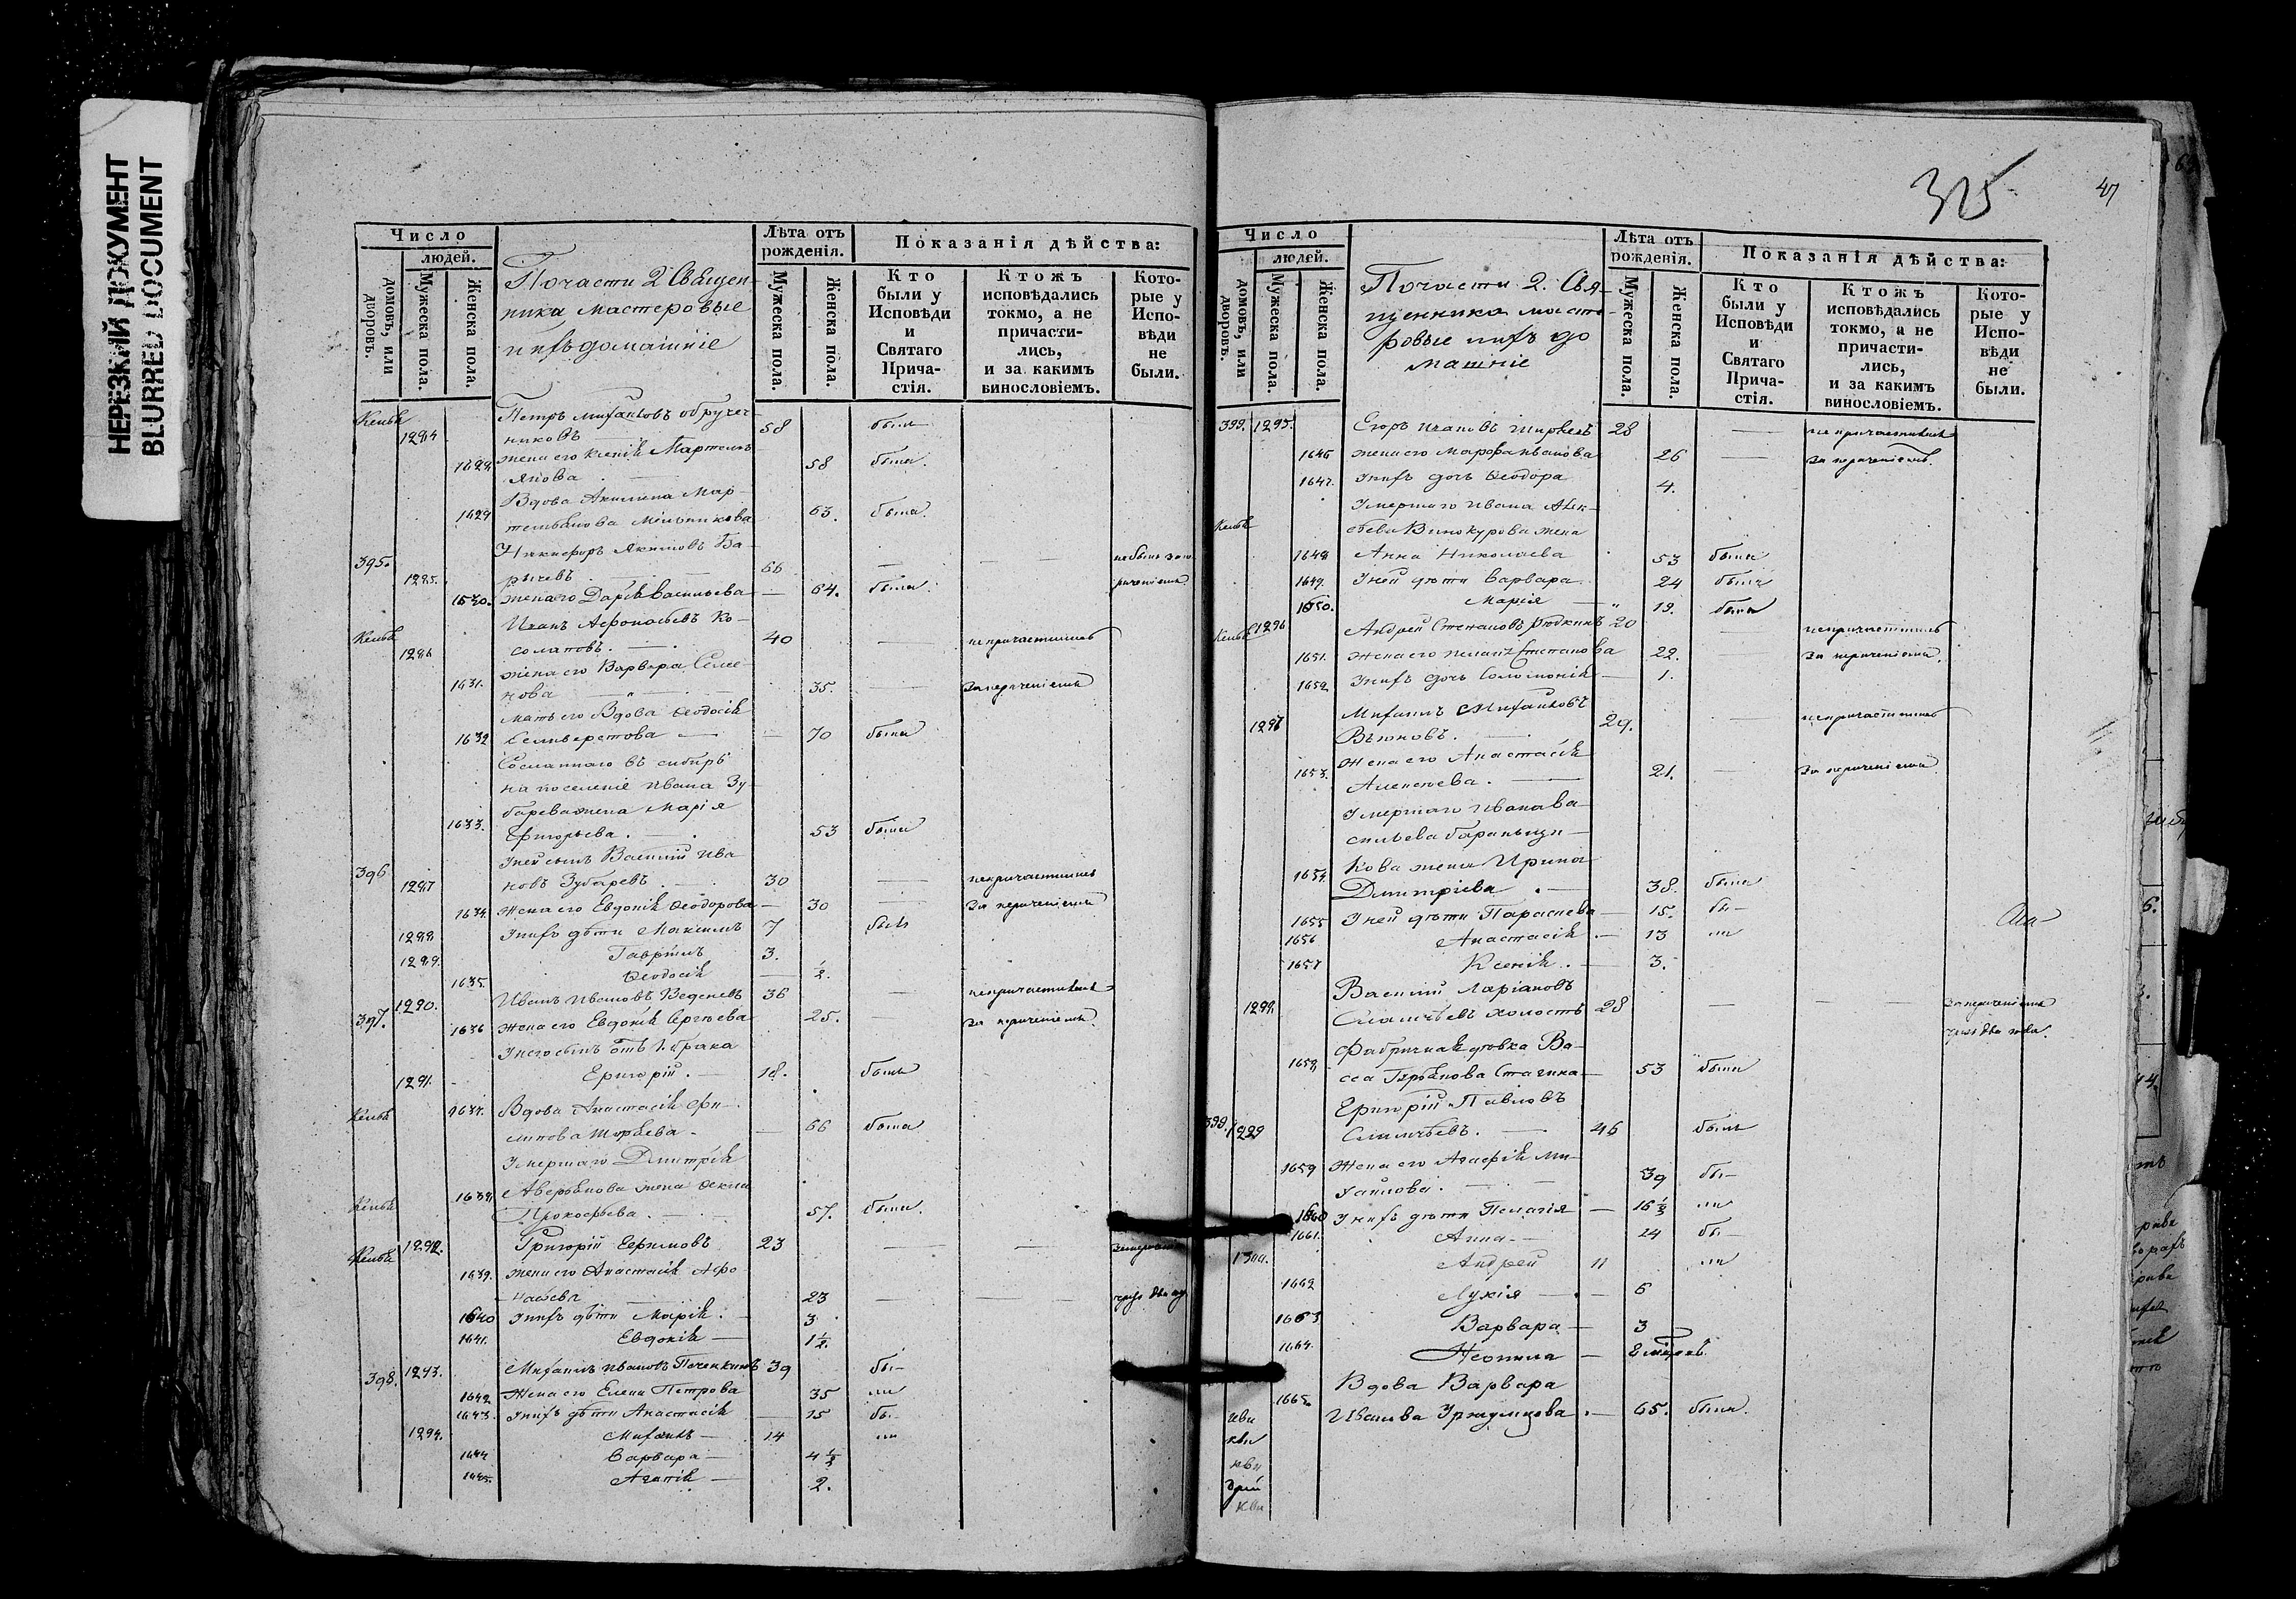 НЕРЕЗКИЙ ДОКУМЕНТ
BLURRED DOCUMENT
325
47
Число
людей.
домовъ, или дворовъ.
Мужеска пола.
Женска пола.
Почасти 2 Священ-
ника мастеровые
ихъ домашніе
Лѣта отъ рожденія.
Мужеска пола.
Женска пола.
Показанія дѣйства:
Кто были у Исповѣди и Святаго Прича-стія.
Ктожъ исповѣдались токмо, а не причасти-лись, и за какимъ винословіемъ.
Кото-рые у Испо-вѣди не были.
1284 Петръ Михайловъ обруч
никовъ 58 былъ
1628 жена его Ксенія Мартемь
янова 58 была.
Вдова Акилина Мар-
1629 темьянова Мельникова 63. была.
395. Никифоръ Якимовъ Ба-
1285. рычевъ 66
1630. жена его Дарія Васильева 64. была.
Иванъ Афонасьевъ Ко-
1286 солаповъ. 40 непричастились
жена его Варвара Семе-
1631. нова 35. За нерачениемъ
мать его Вдова Ѳеодосія
1632 Селиверстова 70 была
Сосланнаго въ сибирь
на поселеніе Ивана Зу-
барева жена Марія
1633. Григорьева. 53 была
У ней сынъ Василій Ива
396 1287 новъ Зубаревъ 30 непричастились
1634 жена его Евдокія Ѳеодорова 30 За нерачениемъ
1288 У нихъ дѣти Максимъ 7 былъ
1289. Гавріилъ 3.
1635. Ѳеодосія ½.
397. 1290. Иванъ Ивановъ Веденевъ 36 непричастились
1636 жена его Евдокія Сергѣева 25. За нерачениемъ.
У него сынъ отъ 1. брака
1291. Григорій. 18. былъ
1637. Вдова Анастасія Фи-
липова 66 была
Умершаго Дмитрія
1638 Аверьянова жена Ѳекла
Прокофьева. 57. была.
1292. Григорій Ефимовъ 23
1639. жена его Анастасія Афо-
насьева 23
1640 У нихъ дѣти Марія. 3
1641. Евдокія 1½.
398. 1293. Михаилъ Ивановъ Печенкинъ 39 бы-
1642 Жена его Елена Петрова 35
1643. У нихъ дѣти Анастасія 15 бы-
1294. Михаилъ 14
1644 Варвара 4½
1645. Агапія 2.
Число
людей.
домовъ, или дворовъ.
Мужеска пола.
Женска пола.
Почасти 2. Свя-
щенника масте-
ровые ихъ до
машніе
Лѣта отъ рожденія.
Мужеска пола.
Женска пола.
Показанія дѣйства:
Кто были у Исповѣди и Святаго Прича-стія.
Ктожъ исповѣдались токмо, а не причасти-лись, и за какимъ винословіемъ.
Кото-рые у Испо-вѣди не были.
399. 1295. Егоръ Ивановъ 28 непричастились
1646 жена его Марфа Иванова 26 За нерачениемъ.
1647. У нихъ дочь Ѳеодора 4.
Умершаго Ивана Алек-
сѣева Винокурова жена
1648 Анна Николаева 53 была
1649. У ней дѣти Варвара 24 была
1650. Марія 19. была
1296 Андрей Степановъ 20 непричастились
1651. Жена его Степанова 22. За нерачениемъ.
1652 У нихъ дочь Соломонія 1.
1297 Михаилъ Михайловъ
Вьюновъ. 29. непричастились
1653. Жена его Анастасія
Алексѣева. 21. За нерачениемъ
Умершаго Ивана Ва-
сильева Бараньщи-
кова жена Ирина
1654. Дмитріева 38. была
1655 У ней дѣти Параскева 15. бы-
1656 Анастасія 13
1657 Ксенія. 3.
Василій Ларіоновъ
1298. холостъ 28 За нерачениемъ
Фабричная дѣвка Ва-
1658 сса 53 была
Григорій Павловъ
399. 1299 46 былъ
1659 Жена его Агафія Ми-
хайлова. 39 бы-
1660 У нихъ дѣти Пелагія 16½
1661. Анна 14 бы-
Андрей 11
1662 Лукія 6
1663 Варвара 3
1664. Неонила 8
Вдова Варвара
1665. Иванова 65. была.